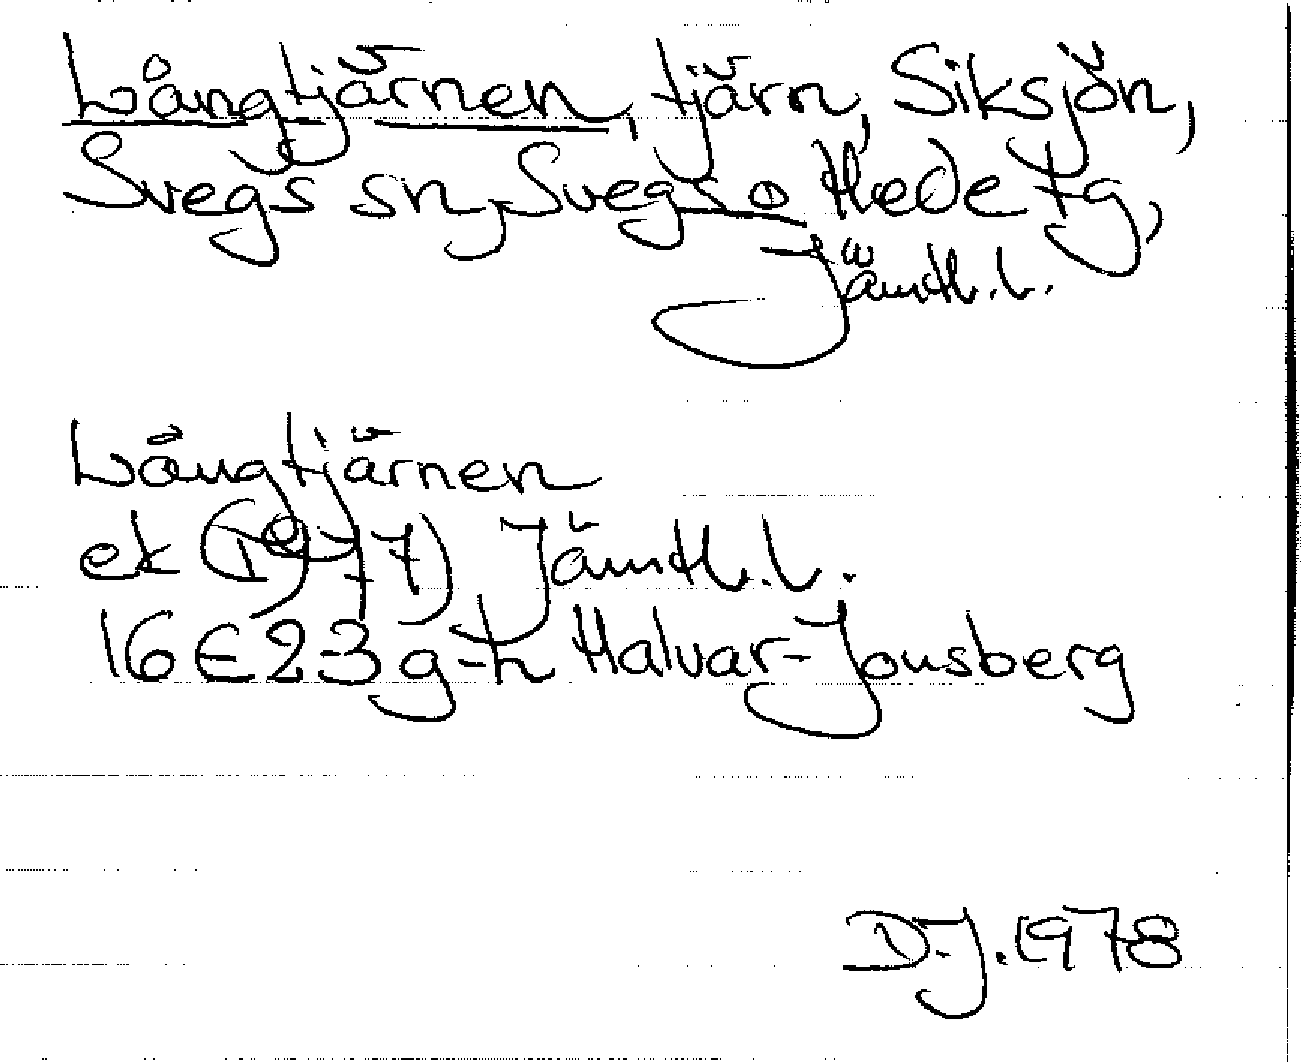 Långtjärnen, tjärn, Siksjön,
Svegs sn, Svegs o Hede tg,
Jämtl. l.
Långtjärnen
ek (1977) Jämtl. l.
16E 2-3 g-h Halvar-Jonsberg
D.J. 1978